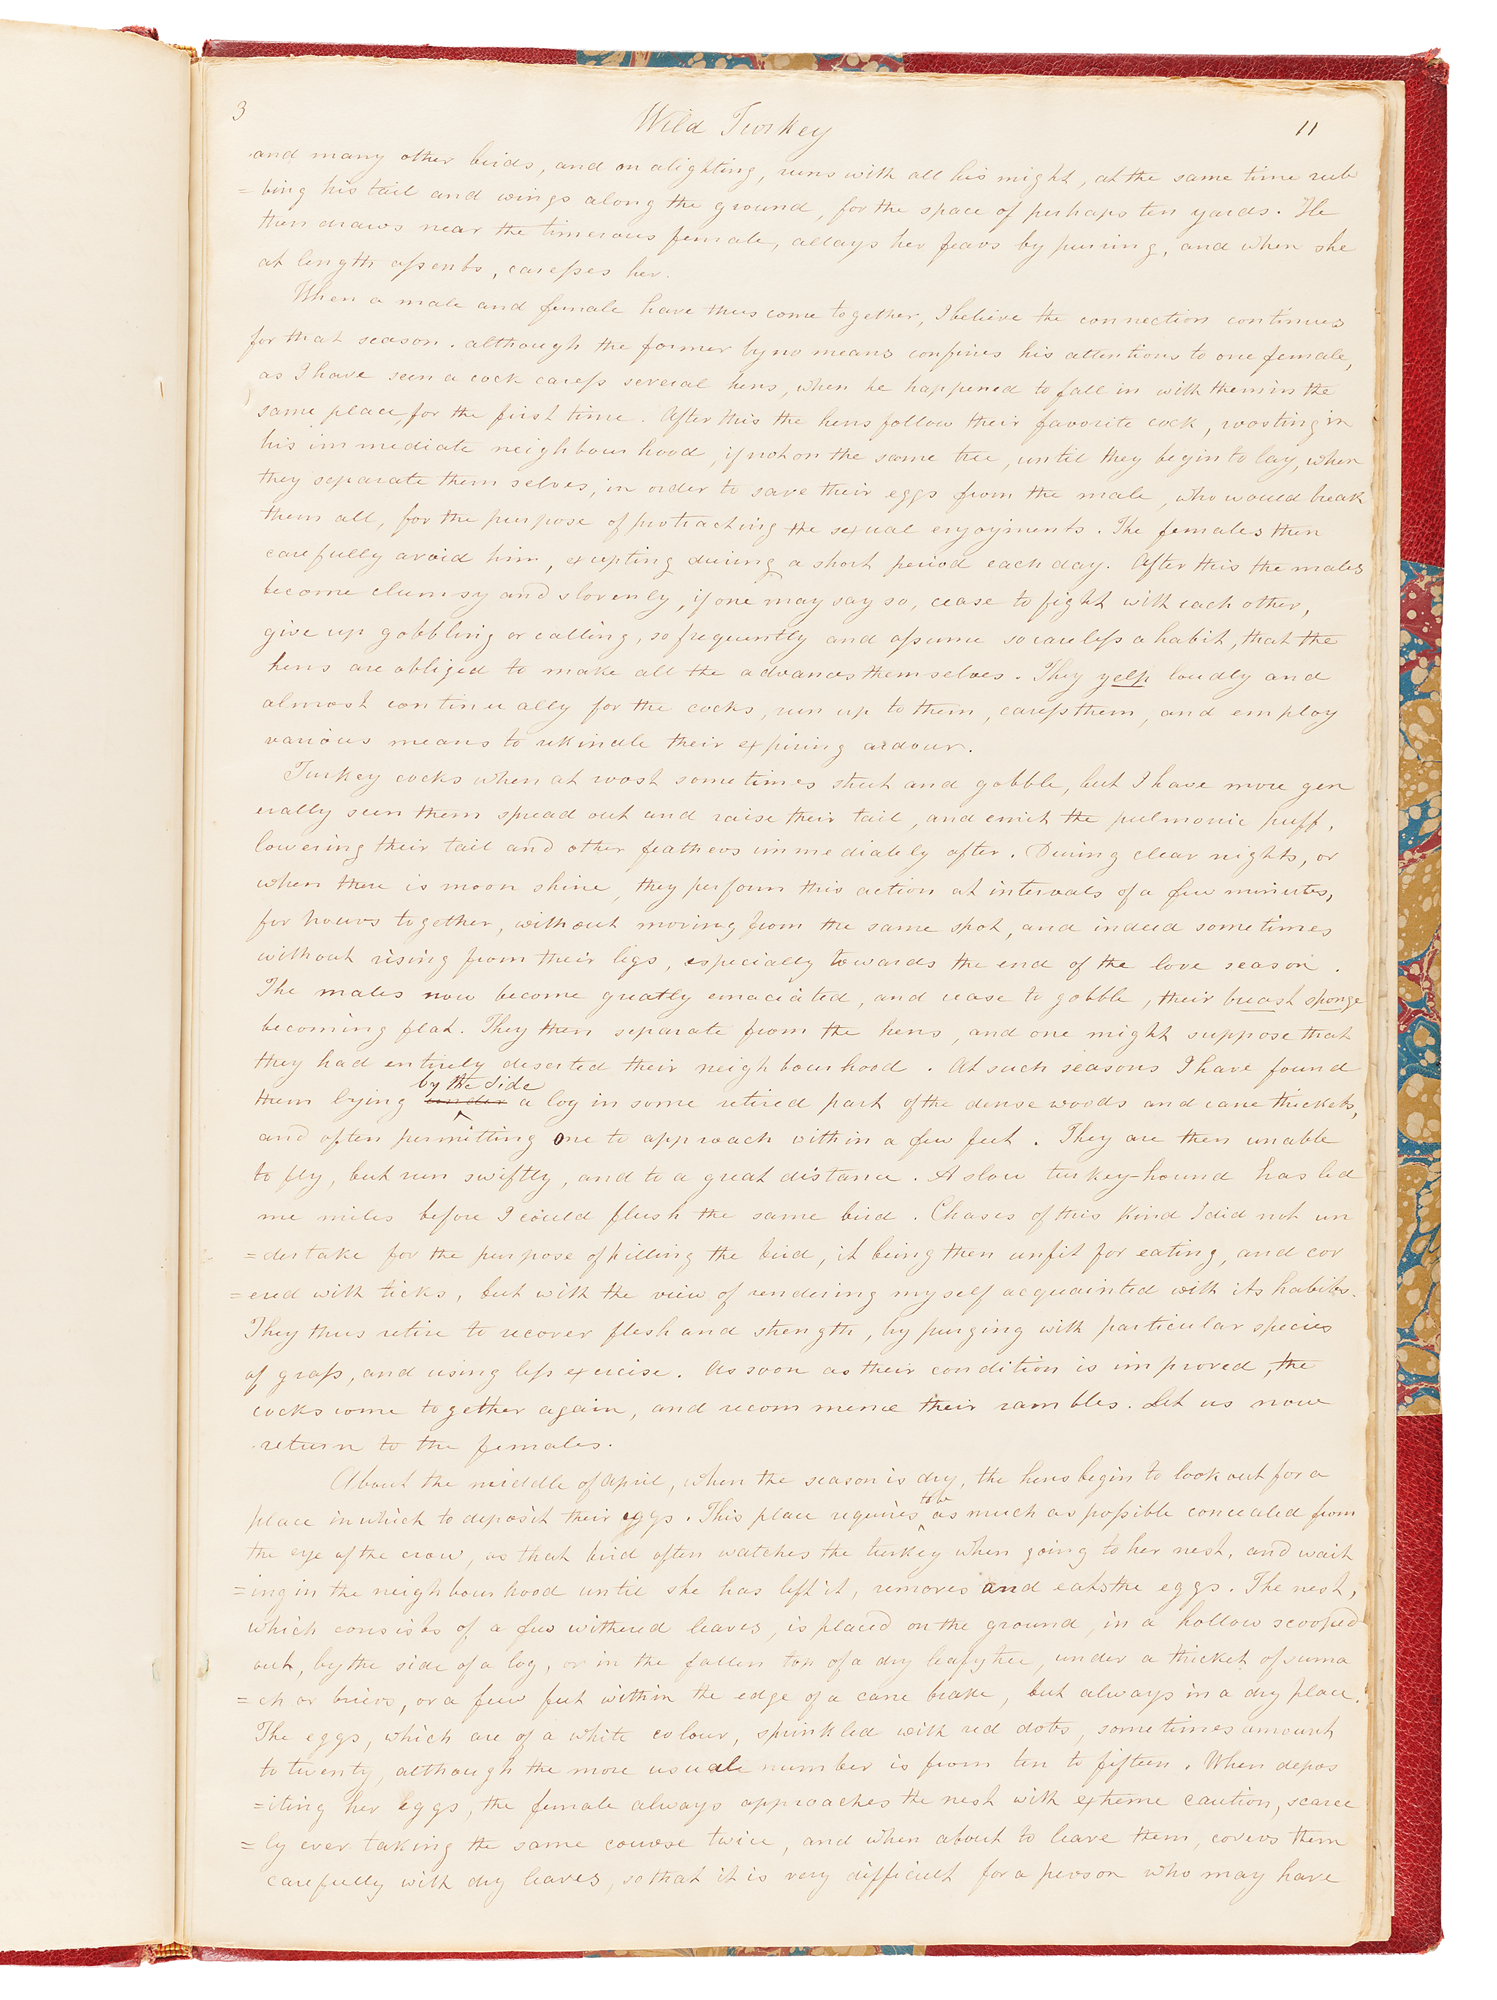 3
Wild Turkey
11
and many other birds, and on alighting, runs with all his might, at the same time rub
=bing his tail and wings along the ground, for the space of perhaps ten yards. He
then draws near the timerous female, allays her fears by purring, and when she
at length assents, caresses her.
When a male and female have thus come together, I believe the connection continues
for that season. although the former by no means confines his attentions to one female,
as I have seen a cock caress several hens, when he happened to fall in with them in the
same place, for the first time. After this the hens follow their favorite cock, roosting in
his immediate neighbourhood, if not on the same tree, until they begin to lay, when
they separate themselves, in order to save their eggs from the male, who would break
them all, for the purpose of protracting the sexual enjoyments. The females then
carefully avoid him, excepting during a short period each day. After this the males
become clumsy and slovenly, if one may say so, cease to fight with each other,
give up gobbling or calling, so frequently and assume so careless a habit, that the
hens are obliged to make all the advances themselves. They yelp loudly and
almost continually for the cocks, run up to them, caress them, and employ
various means to rekindle their expiring ardour.
Turkey cocks when at roost sometimes strut and gobble, but I have more gen
erally seen them spread out and raise their tail, and emit the pulmonic puff,
lowering their tail and other feathers immediately after. During clear nights, or
when there is moon shine, they perform this action at intervals of a few minutes,
for hours together, without moving from the same spot, and indeed sometimes
without rising from their legs, especially towards the end of the love season.
The males now become greatly emaciated, and cease to gobble, their breast sponge
becoming flat. They then separate from the hens, and one might suppose that
they had entirely deserted their neighbourhood. At such seasons I have found
by the side
them lying under a log in some retired part of the dense woods and cane thickets,
and often permitting one to approach within a few feet. They are then unable
to fly, but run swiftly, and to a great distance. A slow turkey-hound has led
me miles before I could flush the same bird. Chases of this kind I did not un
=dertake for the purpose of killing the bird, it being then unfit for eating, and cov
=ered with ticks, but with the view of rendering myself acquainted with its habits.
They thus retire to recover flesh and strength, by purging with particular species
of grass, and using less exercise. As soon as their condition is improved, the
cocks come together again, and recommence their rambles. Let us now
return to the females.
About the middle of April, when the season is dry, the hens begin to look out for a
to be
place in which to deposit their eggs. This place requires as much as possible concealed from
the eye of the crow, as that bird often watches the turkey when going to her nest, and wait
=ing in the neighbourhood until she has left it, removes and eats the eggs. The nest,
which consists of a few withered leaves, is placed on the ground, in a hollow scooped
out, by the side of a log, or in the fallen top of a dry leafy tree, under a thicket of suma
=ch or briers, or a few feet within the edge of a cane brake, but always in a dry place.
The eggs, which are of a white colour, sprinkled with red dots, sometimes amount
to twenty, although the more usual number is from ten to fifteen. When depos
=iting her eggs, the female always approaches the nest with extreme caution, scarce
=ly ever taking the same course twice, and when about to leave them, covers them
carefully with dry leaves, so that it is very difficult for a person who may have